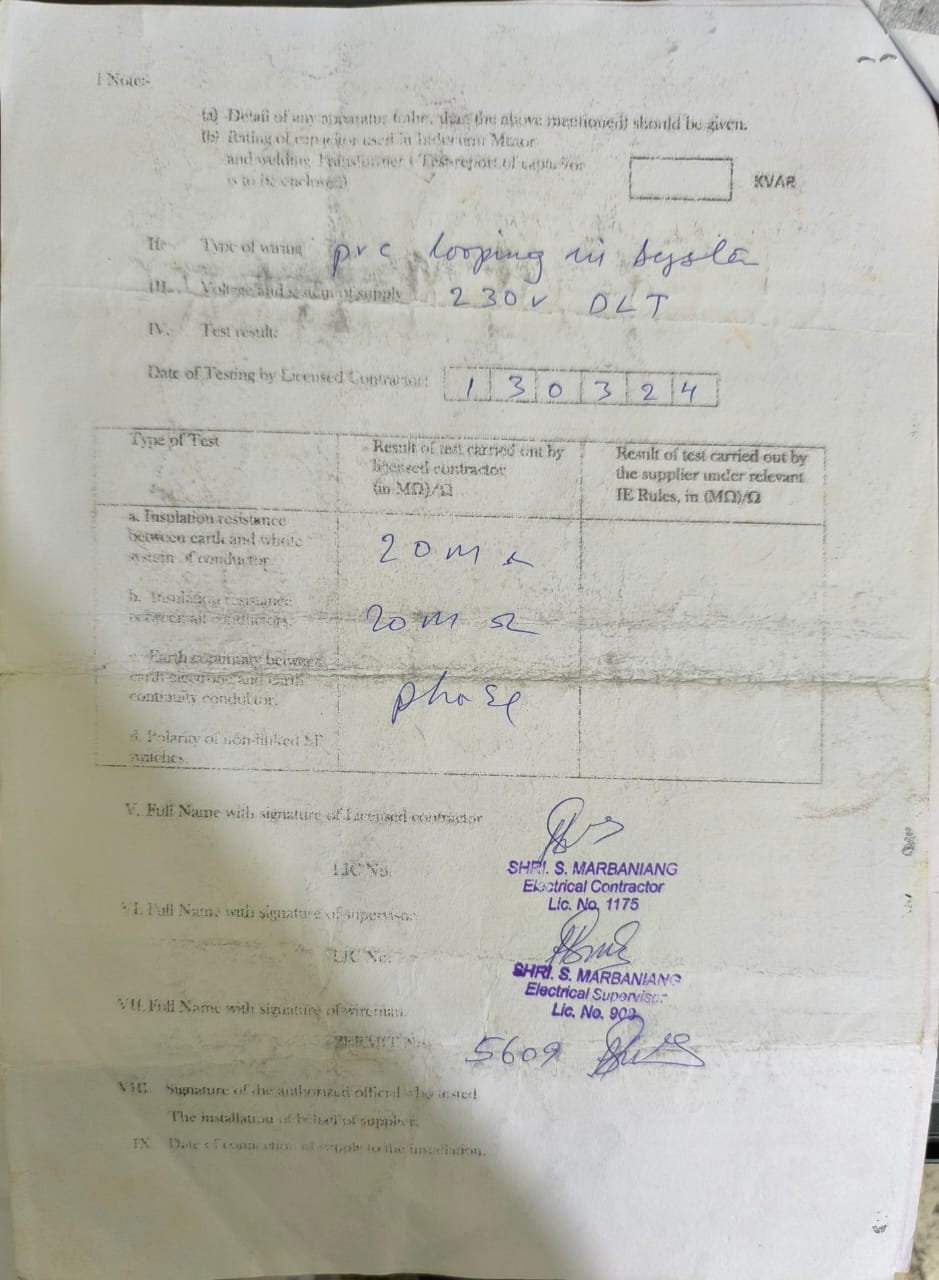 I Note:-
(a) Detail of any apparatus (other than the above mentioned) should be given.
(b) Rating of capacitor used in Induction Motor
and welding Transformer ( Test report of capacitor
is to be enclosed)
KVAR
II- Type of wiring pvc looping in system
III. Voltage and system of supply 230v DLT
IV. Test result:
Date of Testing by Licensed Contractor: 130324
Type of Test
Result of test carried out by
licensed contractor
(in MΩ)/Ω
Result of test carried out by
the supplier under relevant
IE Rules, in (MΩ)/Ω
a. Insulation resistance
between earth and whole
system of conductor
20 M Ω
b. Insulation resistance
between all conductors.
20 M Ω
c. Earth continuity between
earth electrode and earth
continuity conductor.
phase
d. Polarity of non-linked SP
switches.
V. Full Name with signature of Licensed contractor
LIC No.
SHRI. S. MARBANIANG
Electrical Contractor
Lic. No. 1175
VI. Full Name with signature of supervisor
LIC No.
SHRI. S. MARBANIANG
Electrical Supervisor
Lic. No. 903
VII. Full Name with signature of wireman
PERMIT No. 5609
VIII. Signature of the authorized official who tested
The installation of behalf of supplier.
IX. Date of connection of supply to the installation.